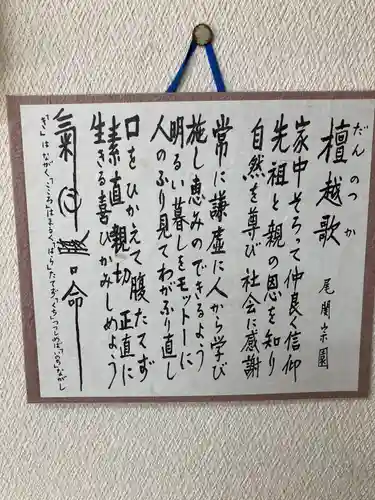 だんのつか
檀越歌
尾関宗園
家中そろって仲良く信仰
先祖と親の恩を知り
自然を尊び社会に感謝
常に謙虚に人から学び
施し恵みのできるよう
明るい暮しをモットーに
人のふり見てわがふり直し
口をひかえて腹たてず
素直親切正直に
生きる喜びかみしめよう
氣心腹口命
「き」はながく、「こころ」はまるく、「はら」たてず、「くち」つつしめば、「いのち」ながし